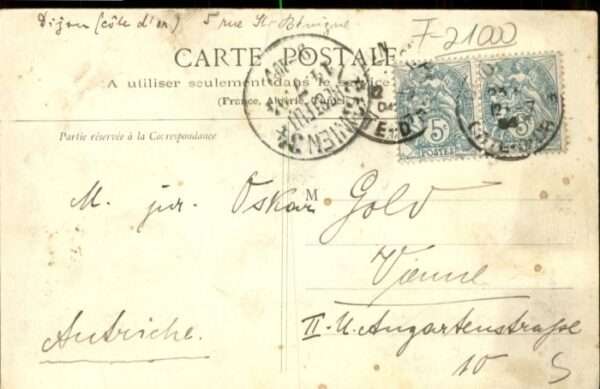 Dijon (côte d'or) 5 rue St-Bénigne
F-21000
CARTE POSTALE
A utiliser seulement dans le service
(France, Algérie,
Partie réservée à la Correspondance
5c 5c
POSTES
WIEN
CÔTE-D'OR
M
M. jur. Oskar Gold
Vienne
II. U. Augartenstraße
Autriche.
10 S